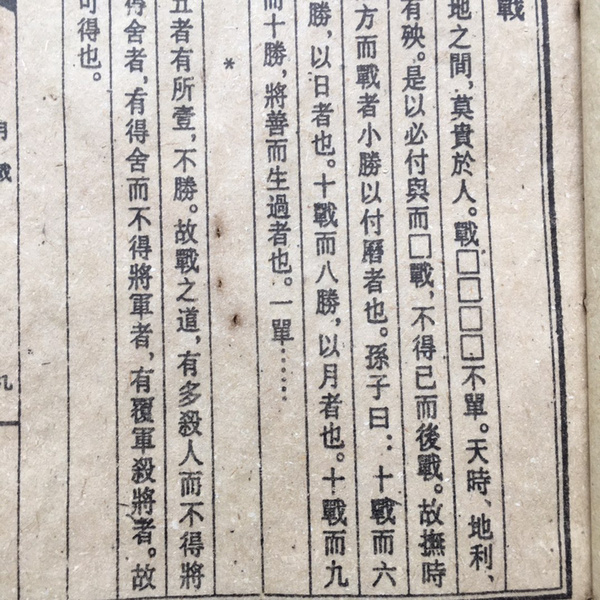 戰
地之間，莫貴於人。戰□□□□不單。天時、地利、
有殃。是以必付與而□戰，不得已而後戰。故撫時
方而戰者小勝以付曆者也。孫子曰：十戰而六
勝，以日者也。十戰而八勝，以月者也。十戰而九
而十勝，將善而生過者也。一單……
*
五者有所壹，不勝。故戰之道，有多殺人而不得將
得舍者，有得舍而不得將軍者，有覆軍殺將者。故
可得也。